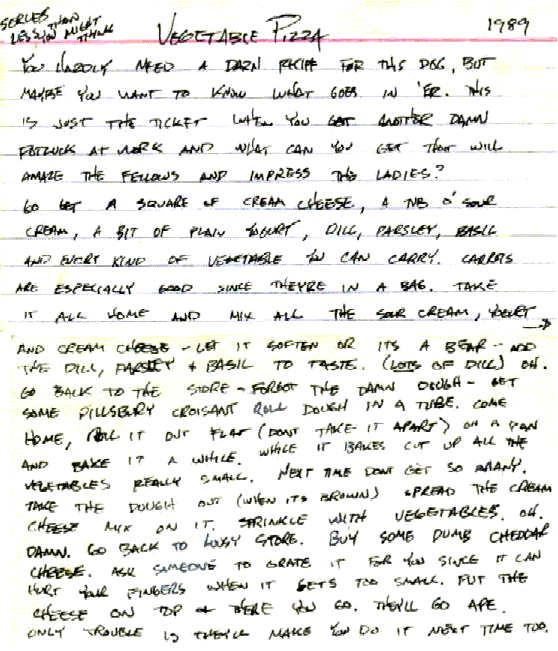 SERVES THAN
LESS YOU MIGHT
THINK
VEGETABLE PIZZA
1989
YOU HARDLY NEED A DARN RECIPE FOR THIS DOG, BUT
MAYBE YOU WANT TO KNOW WHAT GOES IN 'ER. THIS
IS JUST THE TICKET WHEN YOU GET ANOTHER DAMN
POTLUCK AT WORK AND WHAT CAN YOU GET THAT WILL
AMAZE THE FELLOWS AND IMPRESS THE LADIES?
GO GET A SQUARE OF CREAM CHEESE, A TUB O' SOUR
CREAM, A BIT OF PLAIN YOGURT, DILL, PARSLEY, BASIL
AND EVERY KIND OF VEGETABLE YOU CAN CARRY. CARROTS
ARE ESPECIALLY GOOD SINCE THEYRE IN A BAG. TAKE
IT ALL HOME AND MIX ALL THE SOUR CREAM, YOGURT
AND CREAM CHEESE - LET IT SOFTEN OR ITS A BEAR - ADD
THE DILL, PARSLEY + BASIL TO TASTE. (LOTS OF DILL) OH.
GO BACK TO THE STORE - FORGOT THE DAMN DOUGH - GET
SOME PILLSBURY CROISANT ROLL DOUGH IN A TUBE. COME
HOME, ROLL IT OUT FLAT (DONT TAKE IT APART) ON A PAN
AND BAKE IT A WHILE. WHILE IT BAKES CUT UP ALL THE
VEGETABLES REALLY SMALL. NEXT TIME DONT GET SO MANY.
TAKE THE DOUGH OUT (WHEN ITS BROWN) SPREAD THE CREAM
CHEESE MIX ON IT. SPRINKLE WITH VEGETABLES. OH.
DAMN. GO BACK TO LOUSY STORE. BUY SOME DUMB CHEDDAR
CHEESE. ASK SOMEONE TO GRATE IT FOR YOU SINCE IT CAN
HURT YOUR FINGERS WHEN IT GETS TOO SMALL. PUT THE
CHEESE ON TOP + THERE YOU GO. THEYLL GO APE.
ONLY TROUBLE IS THEYLL MAKE YOU DO IT NEXT TIME TOO.